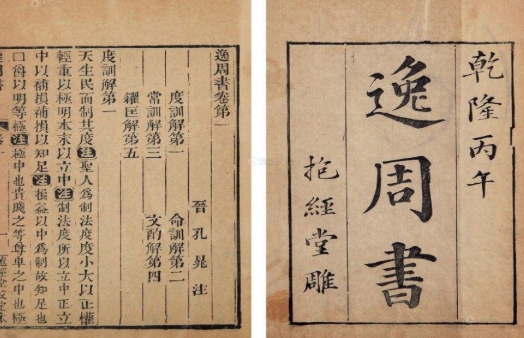 乾隆丙午
逸周書
抱經堂雕
逸周書卷第一
晉孔晁注
度訓解第一 命訓解第二
常訓解第三 文酌解第四
糴匡解第五
度訓解第一
天生民而制其度注聖人爲制法度度小大以正權
輕重以極明本末以立中注制法度所以立中正立
中以補損補損以知足注損益以中爲制故知足也
□爵以明等極注極中也貴賤之等尊卑之中也極